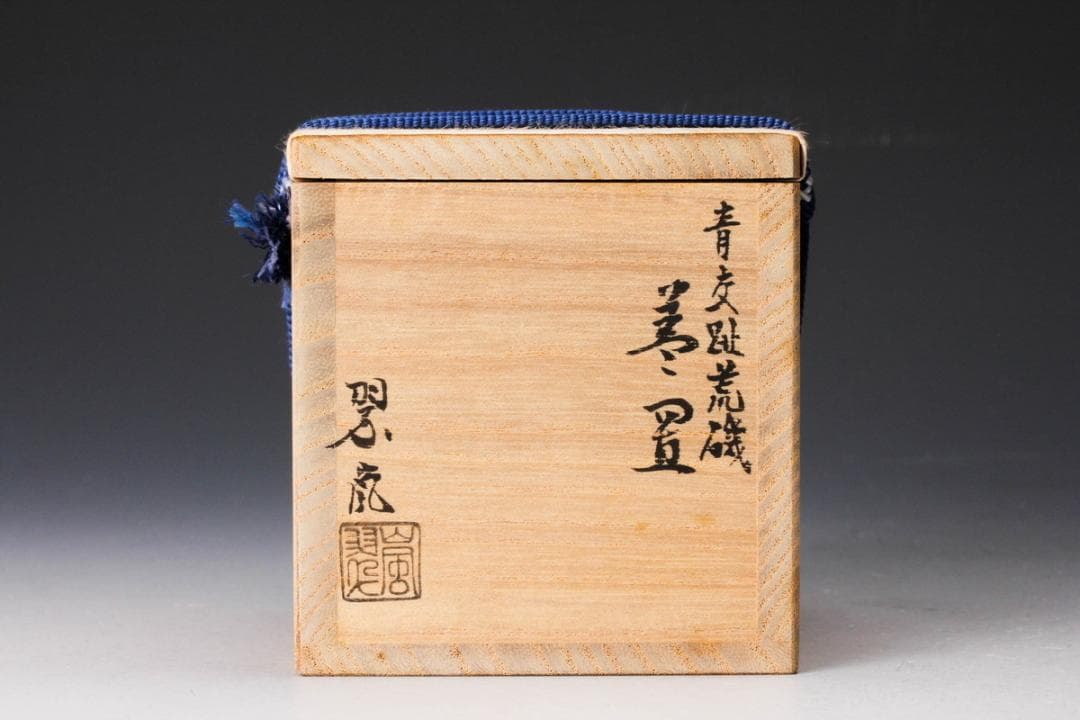 青交趾荒磯
蓋置
翠嵐
翠嵐